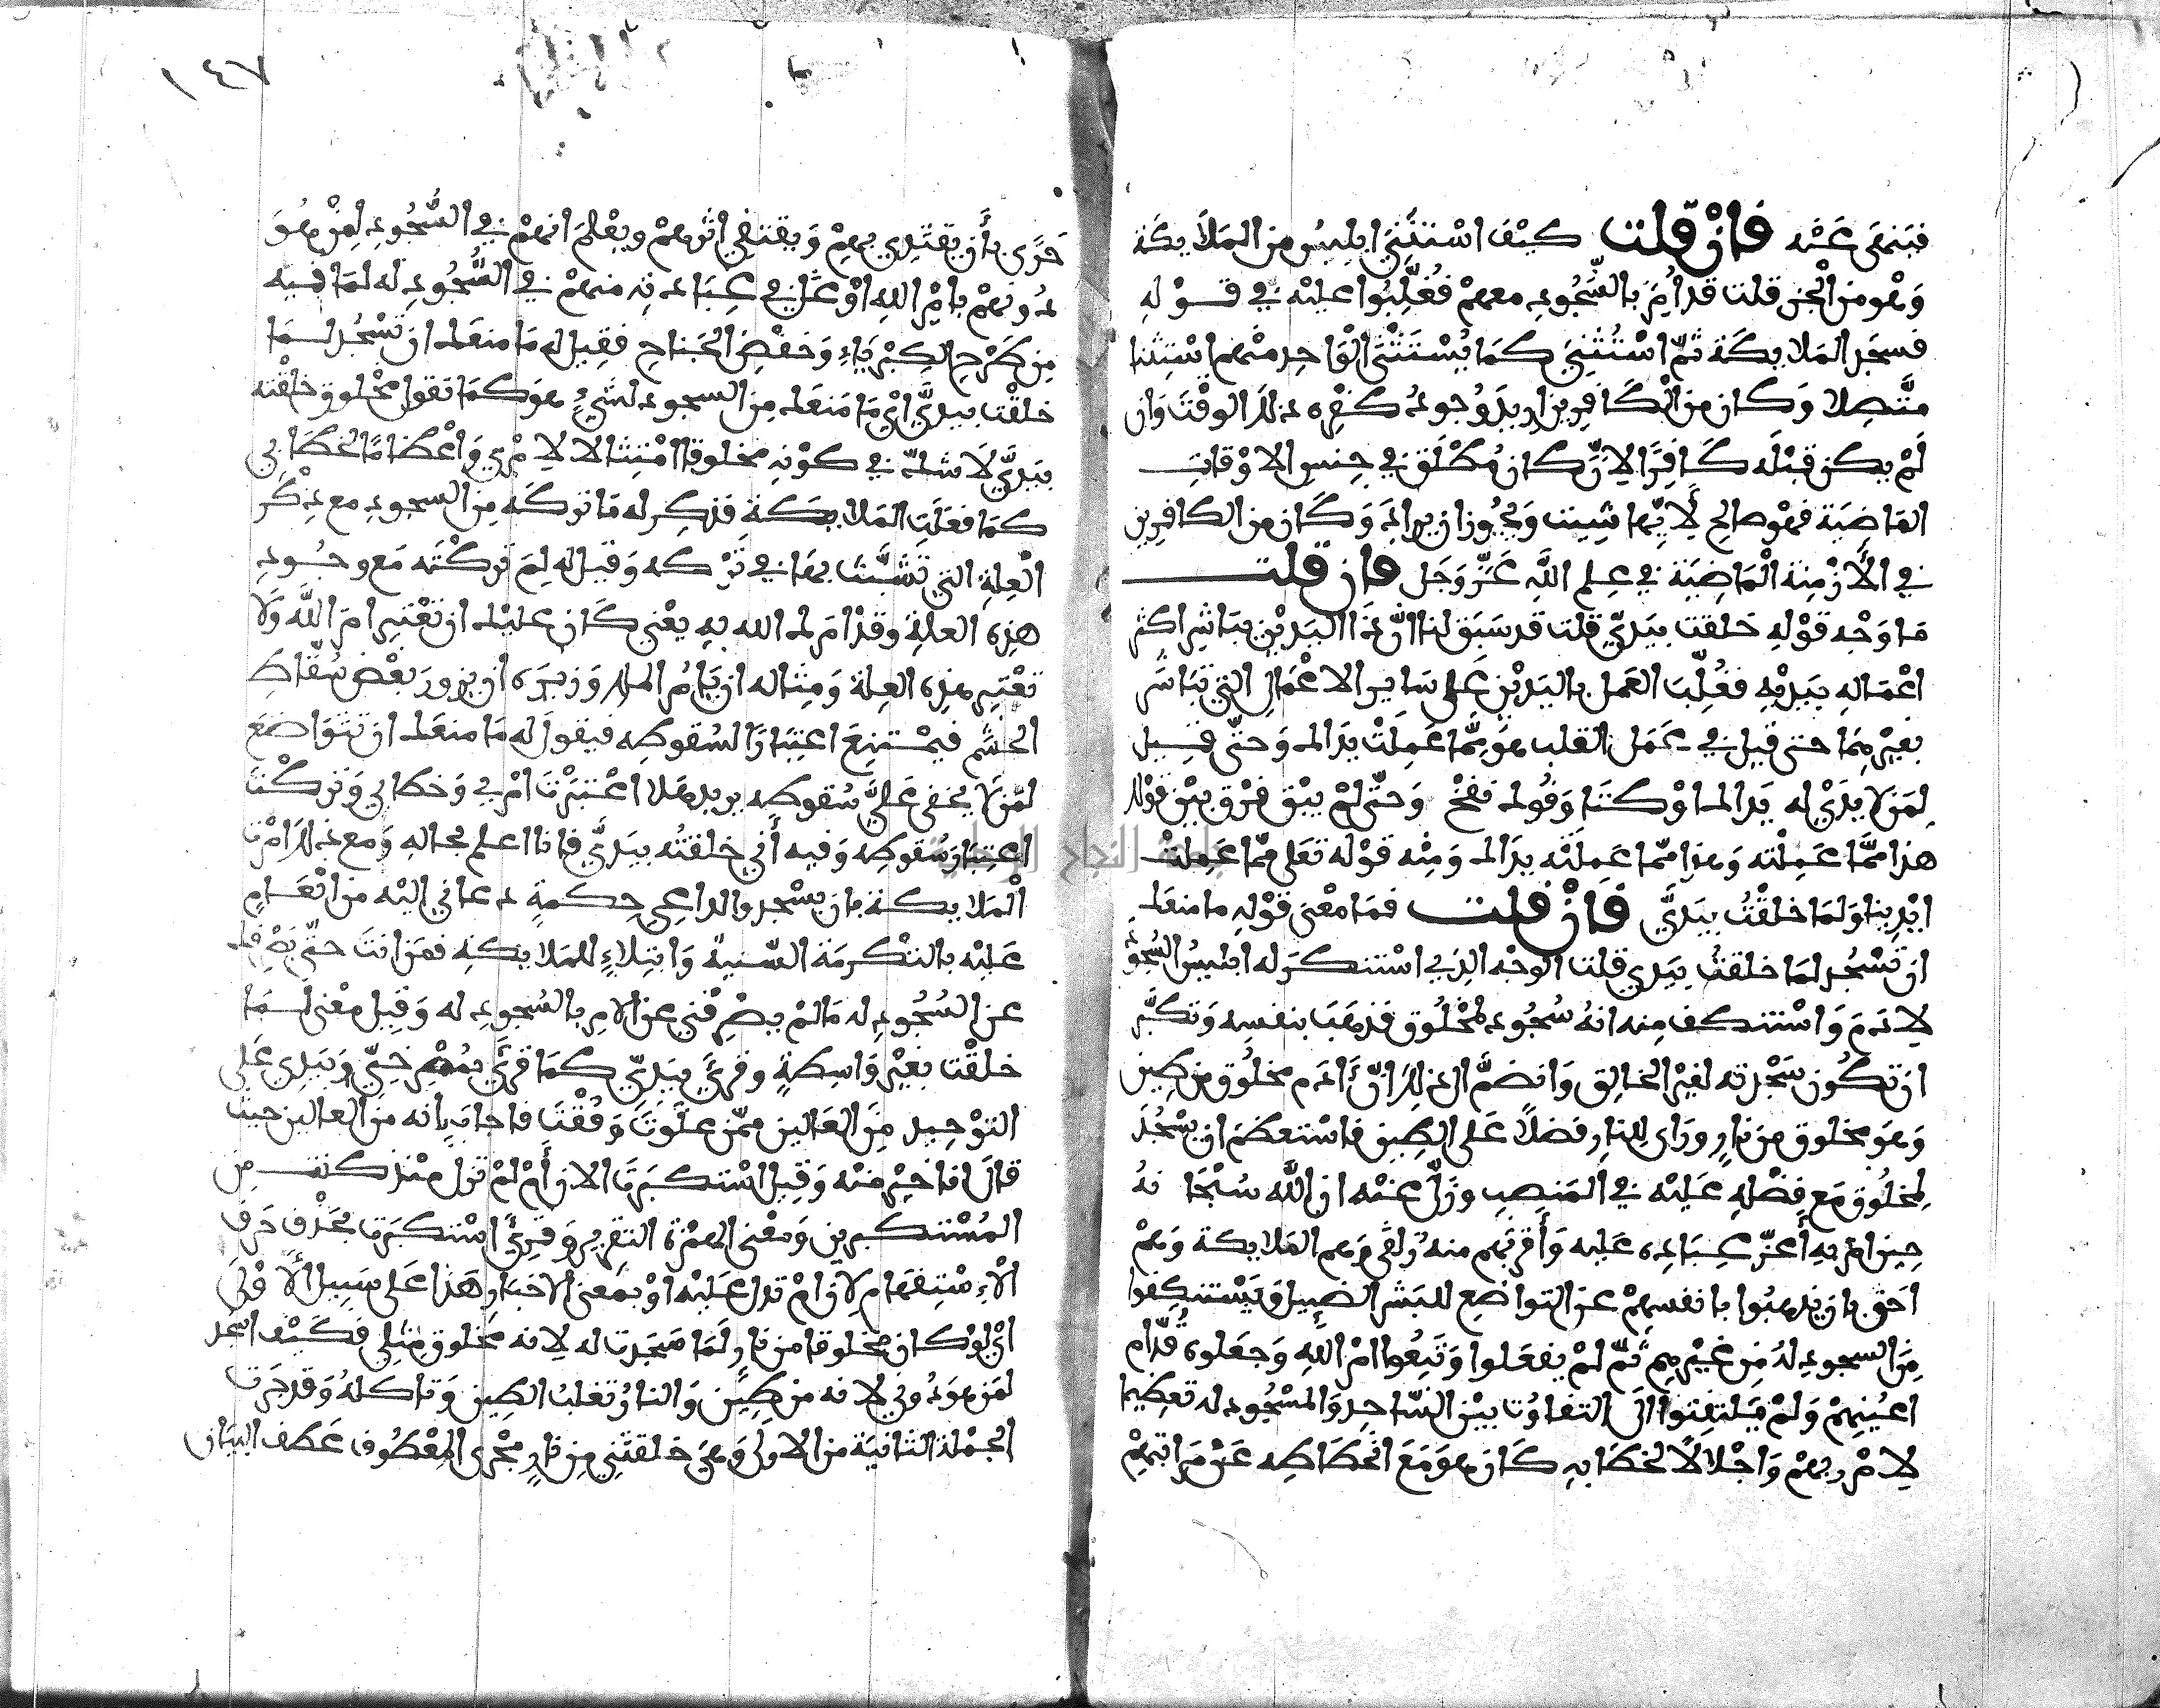 فينهى عنه فإن قلت كيف استثني ابليس من الملايكة
وهو من الجن قلت قد أمر بالسجود معهم فغلبوا عليه في قوله
فسجد الملايكة ثم استثني كما يستثنى الواحد منهم استثنا
متصلا وكان من الكافرين اريد وجود كفره ذلك الوقت وان
لم يكن قبله كافرا لان كان مطلق في جنس الاوقات
الماضية فهو صالح لايها شيت ويجوز ان يراد وكان من الكافرين
في الأزمنة الماضية في علم الله عز وجل فان قلت
ما وجه قوله خلقت بيدي قلت قد سبق لنا ان ذا اليدين يباشر اكثر
اعماله بيديه فغلب العمل باليدين على ساير الاعمال التي تباشر
بغيرهما حتى قيل في عمل القلب هو مما عملت يداك وحتى قيل
لمن لا يدي له يداك اوكتا وفوك نفخ وحتى لم يبق فرق بين قولك
هذا مما عملته وهذا مما عملته يداك ومنه قوله تعلى مما عملت
ايدينا ولما خلقت بيدي فإن قلت فما معنى قوله ما منعك
ان تسجد لما خلقت بيدي قلت الوجه الذي استنكر له ابليس السجود
لادم واستنكف منه انه سجود لمخلوق فذهب بنفسه وتكبر
ان تكون سجدته لغير الخالق وانضم الى ذلك ان ءادم مخلوق من طين
وهو مخلوق من نار وراى للنار فضلا على الطين فاستعظم ان يسجد
لمخلوق مع فضله عليه في المنصب وزل عنه ان الله سبحانه
حين امر به أعز عباده عليه وأقربهم منه زلفى وهم الملايكة وهم
احق بان يذهبوا بانفسهم عن التواضع للبشر الضييل ويستنكفوا
من السجود له من غيرهم ثم لم يفعلوا وتبعوا امر الله وجعلوه قدام
اعينهم ولم يلتفتوا الى التفاوت بين الساجد والمسجود له تعظيما
لامر ربهم واجلالا لخطابه كان هو مع انحطاطه عن مراتبهم
١٤٧
حرى بأن يقتدي بهم ويقتفي اثرهم ويعلم انهم في السجود لمن هو
دونهم بامر الله اوغل في عبادته منهم في السجود له لما فيه
من طرح الكبرياء وخفض الجناح فقيل له ما منعك ان تسجد لما
خلقت بيدي اي ما منعك من السجود لشيء هو كما تقول مخلوق خلقته
بيدي لا شك في كونه مخلوقا امتثالا لامري واعظاما لخطابي
كما فعلت الملايكة فذكر له ما تركه من السجود مع ذكر
العلة التي تشبث بها في تركه وقيل له لم تركته مع وجود
هذه العلة وقد امرك الله به يعني كان عليك ان تعتبر امر الله ولا
تعتبر هذه العلة ومثاله ان يامر الملك وزيره ان يزور بعض سقاط
الحشم فيمتنع اعتبارا لسقوطه فيقول له ما منعك ان تتواضع
لمن لا يخفى علي سقوطه يريد هلا اعتبرت امري وخطابي وتركت
اعتبار سقوطه وفيه أني خلقته بيدي فانا اعلم بحاله ومع ذلك امرت
الملايكة بان يسجدوا لداعي حكمة دعاني اليه من انعام
عليه بالتكرمة السنية وابتلاء للملايكة فمن انت حتى يصرفك
عن السجود له ما لم يصرفني عن الامر بالسجود له وقيل معنى لما
خلقت بغير واسطة وقرئ بيدي كما قرئ بمصرخي وبيدي على
التوحيد من العالين ممن علوت وفقت فاجاب بانه من العالين حيث
قال انا خير منه وقيل استكبرت الان أم لم تزل منذ كنت من
المستكبرين ومعنى الهمزة التقرير وقرئ استكبرت بحذف حرف
الاستفهام لان ام تدل عليه او بمعنى الاخبار وهذا على سبيل الأولى
اي لو كان مخلوقا من نار لما سجدت له لانه مخلوق مثلي فكيف اسجد
لمن هو دوني لانه من طين والنار تغلب الطين وتاكله وقد جرت
الجملة الثانية من الاولى وهي خلقتني من نار مجرى المعطوف عطف البيان